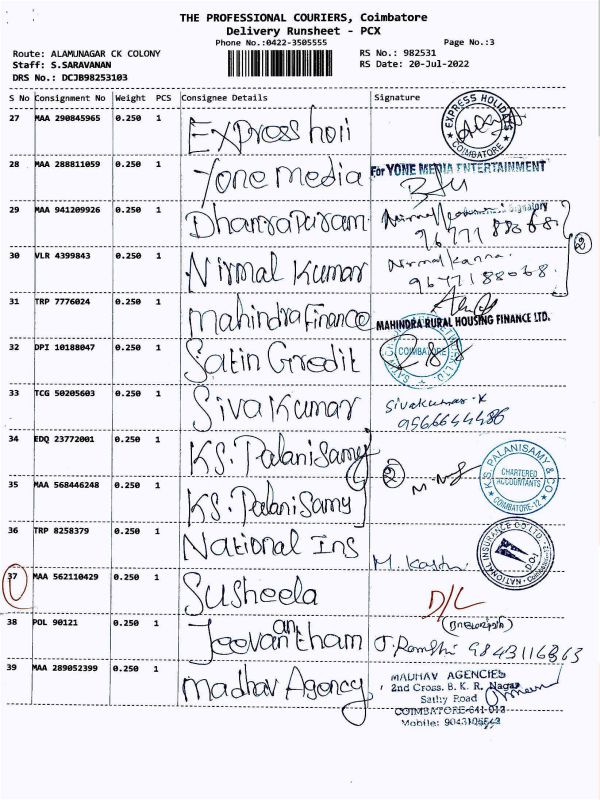 THE PROFESSIONAL COURIERS, Coimbatore
Delivery Runsheet - PCX
Phone No.:0422-3505555
Page No.:3
Route: ALAMUNAGAR CK COLONY
RS No.: 982531
Staff: S.SARAVANAN
RS Date: 20-Jul-2022
DRS No.: DCJB98253103
S No Consignment No Weight PCS Consignee Details Signature
27 MAA 290845965 0.250 1 Express holi EXPRESS HOLIDAYS COIMBATORE
28 MAA 288811059 0.250 1 Yone media For YONE MEDIA ENTERTAINMENT
29 MAA 941209926 0.250 1 Dhamrapuram
30 VLR 4399843 0.250 1 Nirmal Kumar Nirmal Kanna.
9677188068.
2
31 TRP 7776024 0.250 1 Mahindra Finance MAHINDRA RURAL HOUSING FINANCE LTD.
32 DPI 10188047 0.250 1 Satin Credit COIMBATORE
33 TCG 50205603 0.250 1 Siva Kumar Sivakumar.K
9566644486
34 EDQ 23772001 0.250 1 KS. Palanisamy
2
K.S. PALANISAMY & CO CHARTERED ACCOUNTANTS COIMBATORE-12
35 MAA 568446248 0.250 1 KS. Palanisamy
36 TRP 8258379 0.250 1 National Ins NATIONAL INSURANCE CO LTD
37 MAA 562110429 0.250 1 Susheela D/L
38 POL 90121 0.250 1 Jeevanantham 9843116363
39 MAA 289052399 0.250 1 Madhav Agency,
MADHAV AGENCIES
2nd Cross. B. K. R. Nagar
Sathy Road
COIMBATORE-641 012
Mobile: